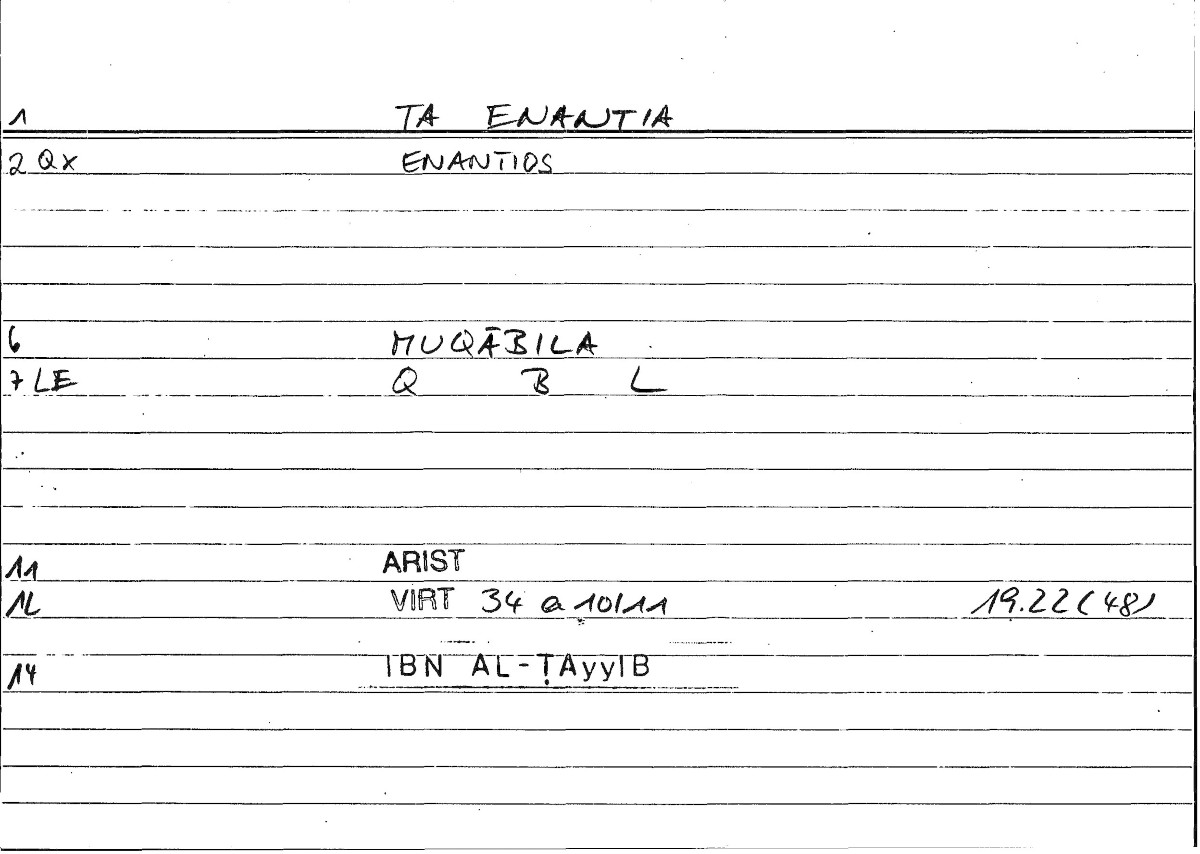 1 TA ENANTIA
2 QX ENANTIOS
6 MUQĀBILA
7 LE Q B L
11 ARIST
12 VIRT 34 a 10/11 19.22 (48)
14 IBN AL-ṬAyyIB